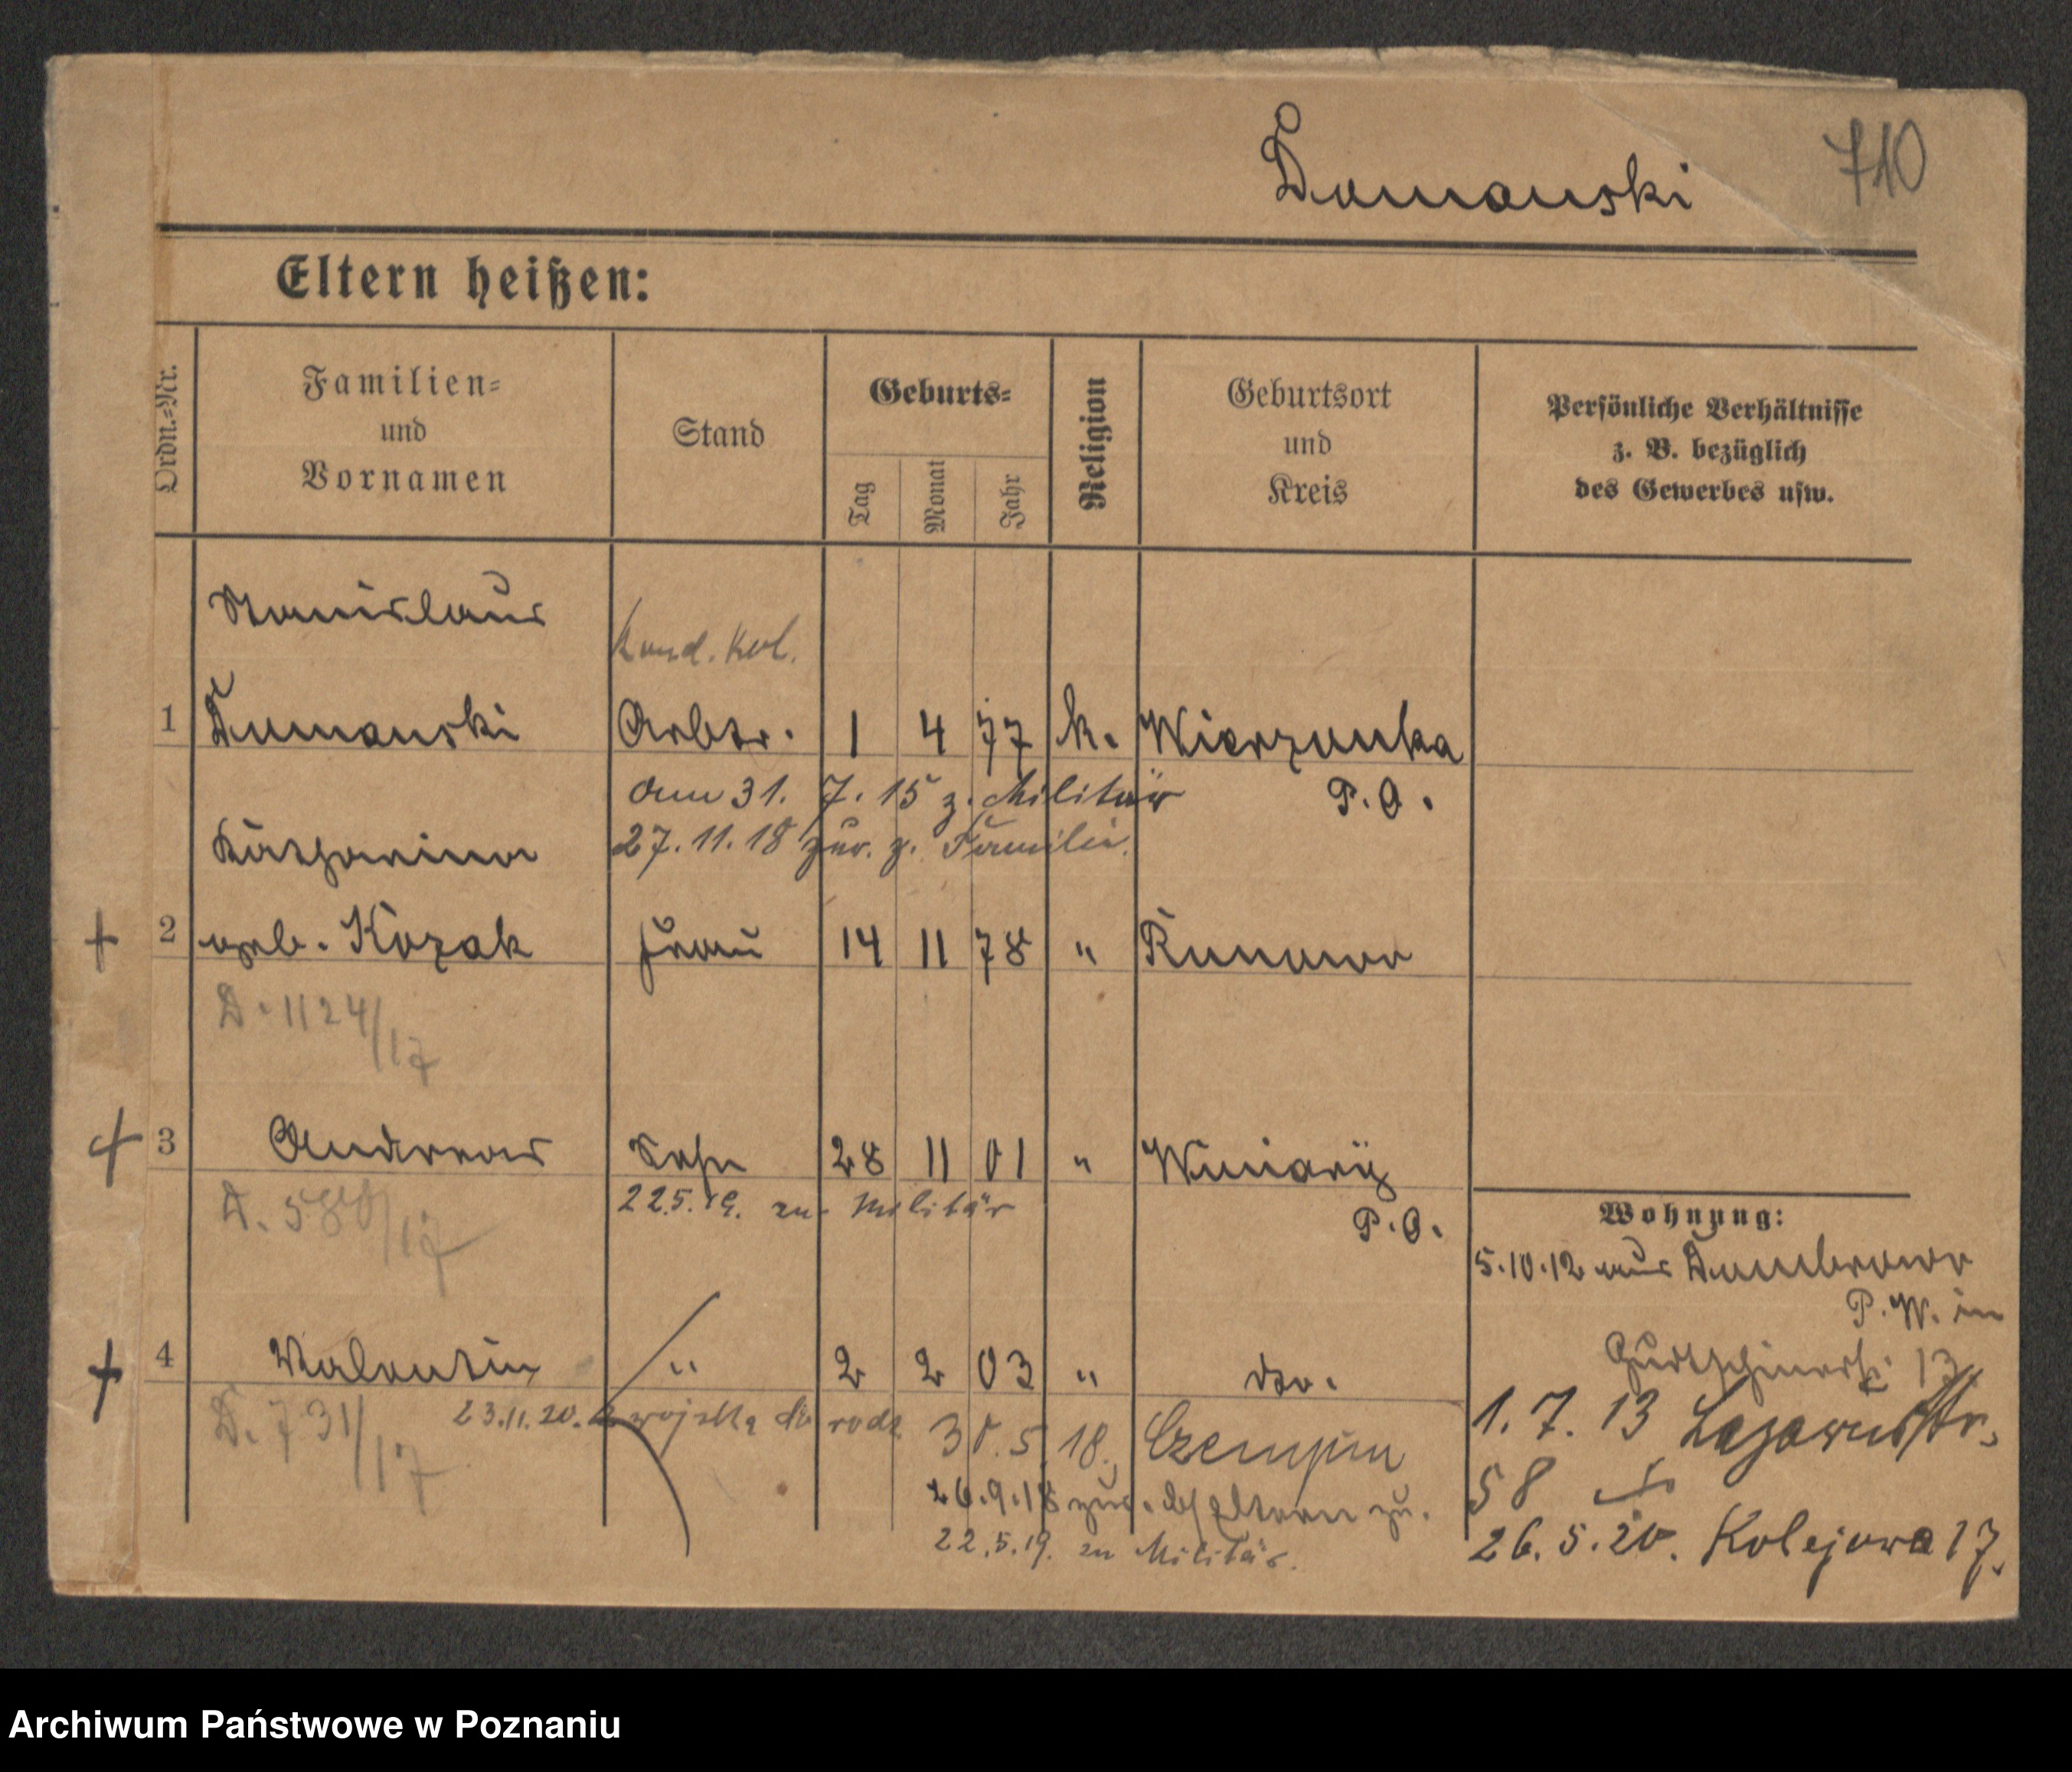 Domanski
710
Eltern heißen:
Ordn.=Nr.
Familien=
und
Vornamen
Stand
Geburts=
Tag
Monat
Jahr
Religion
Geburtsort
und
Kreis
Persönliche Verhältnisse
z. B. bezüglich
des Gewerbes usw.
Stanislaus
1 Domanski Arbtr. 1 4 77 k. Wierzonka
am 31. 7. 15 z. Militär P. O.
27. 11. 18 zur. z. Familie.
Katharina
2 geb. Kozak Frau 14 11 78 " Runowo
D. 1124/17
3 Andreas Sohn 28 11 01 " Winiary
D. 580/17
22.5.19. zu Militär
P. O.
Wohnung:
5.10.12 aus Dombrowo
P. W. in
13
4 Valentin " 2 2 03 " dto.
D. 731/17
23.11.20. z wojska do rodz
30. 5. 18. Czempin
26.9.18 zur. Eltern zu.
22.5.19. zu Militär.
1. 7. 13 Lazarusstr.
58
26. 5. 20. Kolejowa 17.
Archiwum Państwowe w Poznaniu